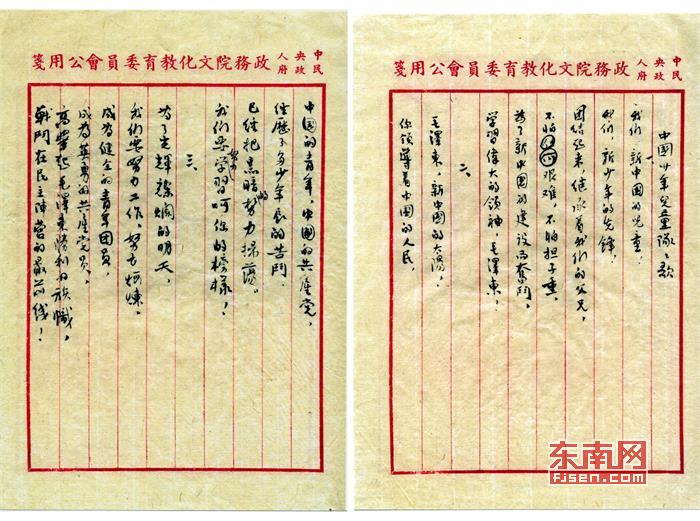 中央人民政府
政務院文化教育委員會公用箋
中國少年兒童隊隊歌
一、
我們，新中國的兒童，
我們，新少年的先鋒，
團結起来，繼承着我們的父兄，
不怕艱难，不怕担子重，
為了新中國的建設而奮鬥，
學習偉大的領袖，毛澤東！
二、
毛澤東，新中國的太陽，
你領導着中國的人民，
中央人民政府
政務院文化教育委員會公用箋
中國的青年，中國的共產党，
經歷了多少年的苦鬥，
已經把黑暗的势力掃蕩。
我們要學習你的榜樣！
三、
為了光輝燦爛的明天，
我們要努力工作，努力煅煉，
成為健全的青年團員，
成為英勇的共產党員，
高舉起毛澤東勝利的旗幟，
戰鬥在民主陣營的最前线！
东南网
FJSEN.COM